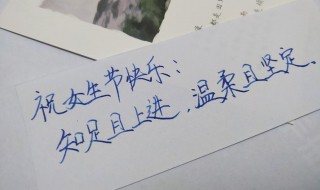 祝女生节快乐:
知足且上进,温柔且坚定.